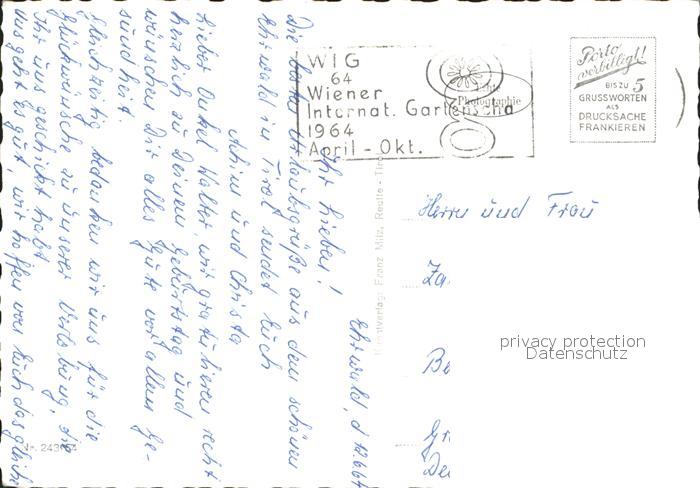 WIG
64
Wiener
Internat. Gartenschau
1964
April - Okt.
Echte
Photographie
Porto
verbilligt!
BIS ZU 5
GRUSSWORTEN
ALS
DRUCKSACHE
FRANKIEREN
Ehrwald, d 13.6.64
Ihr Lieben!
Die besten Urlaubsgrüße aus dem schönen
Ehrwald in Tirol sendet Euch
Achim und Christa
Lieber Onkel Walter, wir gratulieren recht
herzlich zu Deinem Geburtstag und
wünschen Dir alles Gute vor allem Ge-
sundheit.
Gleichzeitig bedanken wir uns für die
Glückwünsche zu unserer Verlobung, die
Ihr uns geschickt habt.
Uns geht es gut, wir hoffen von Euch das gleiche
Kunstverlag Franz Milz, Reutte - Tirol
Herrn und Frau
Za
privacy protection
Datenschutz
Be
Gr
De
Nr. 243